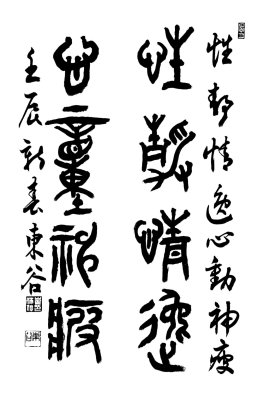 性靜情逸心動神疲
性靜情逸
心動神疲
壬辰新春東谷